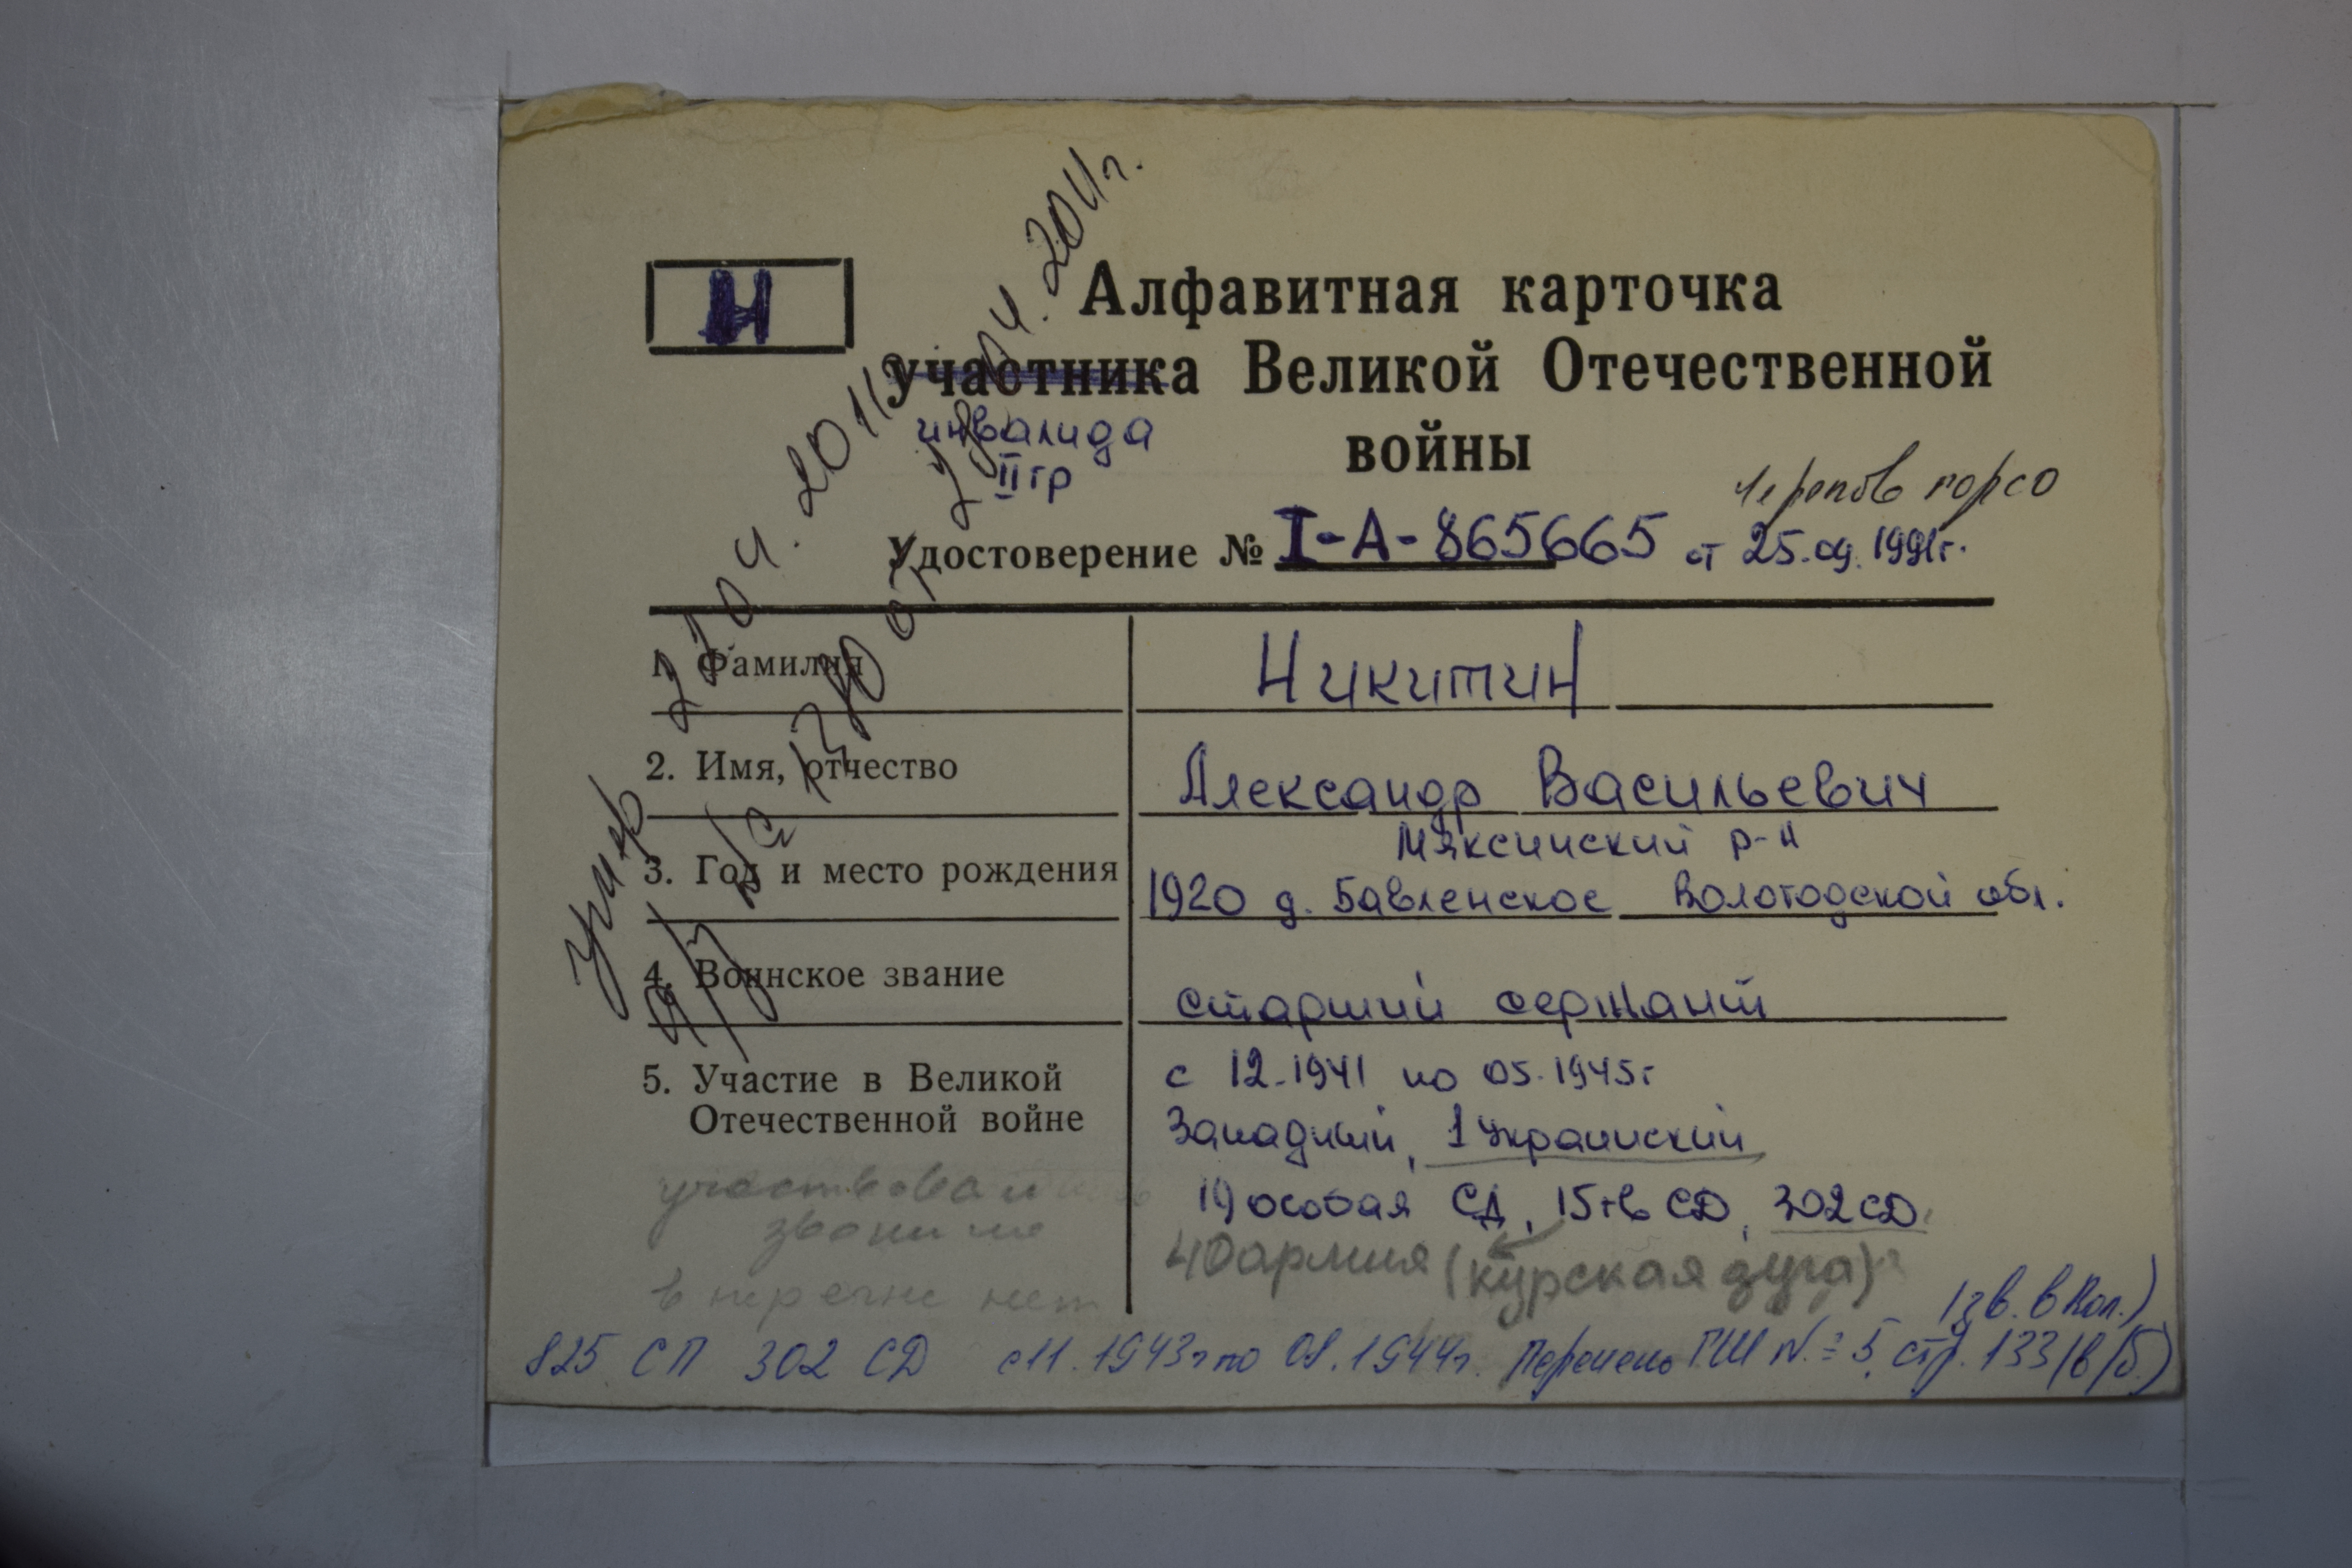 Н
Алфавитная карточка
участника Великой Отечественной
инвалида
войны
II гр
Черепов горсо
Удостоверение № I-А-865665 от 25.09.1991г.
1. Фамилия Никитин
2. Имя, отчество Александр Васильевич
Мяксинский р-н
3. Год и место рождения 1920 д. Бавленское Вологодской обл.
4. Воинское звание старший сержант
5. Участие в Великой с 12.1941 по 05.1945г
Отечественной войне Западный, 1 Украинский
19 особая СД, 15 гв СД, 302 СД
участвовал
звонили
40 армия (курская дуга)?
в перечне нет
825 СП 302 СД с 11.1943г по 08.1944г. Перечень ГШ №5, стр. 133
умер 21.04.2011г
№ 1380 от 22.04.2011г.